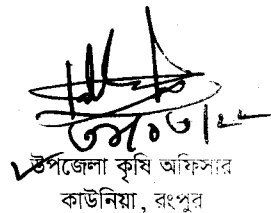 উপজেলা কৃষি অফিসার
কাউনিয়া, রংপুর